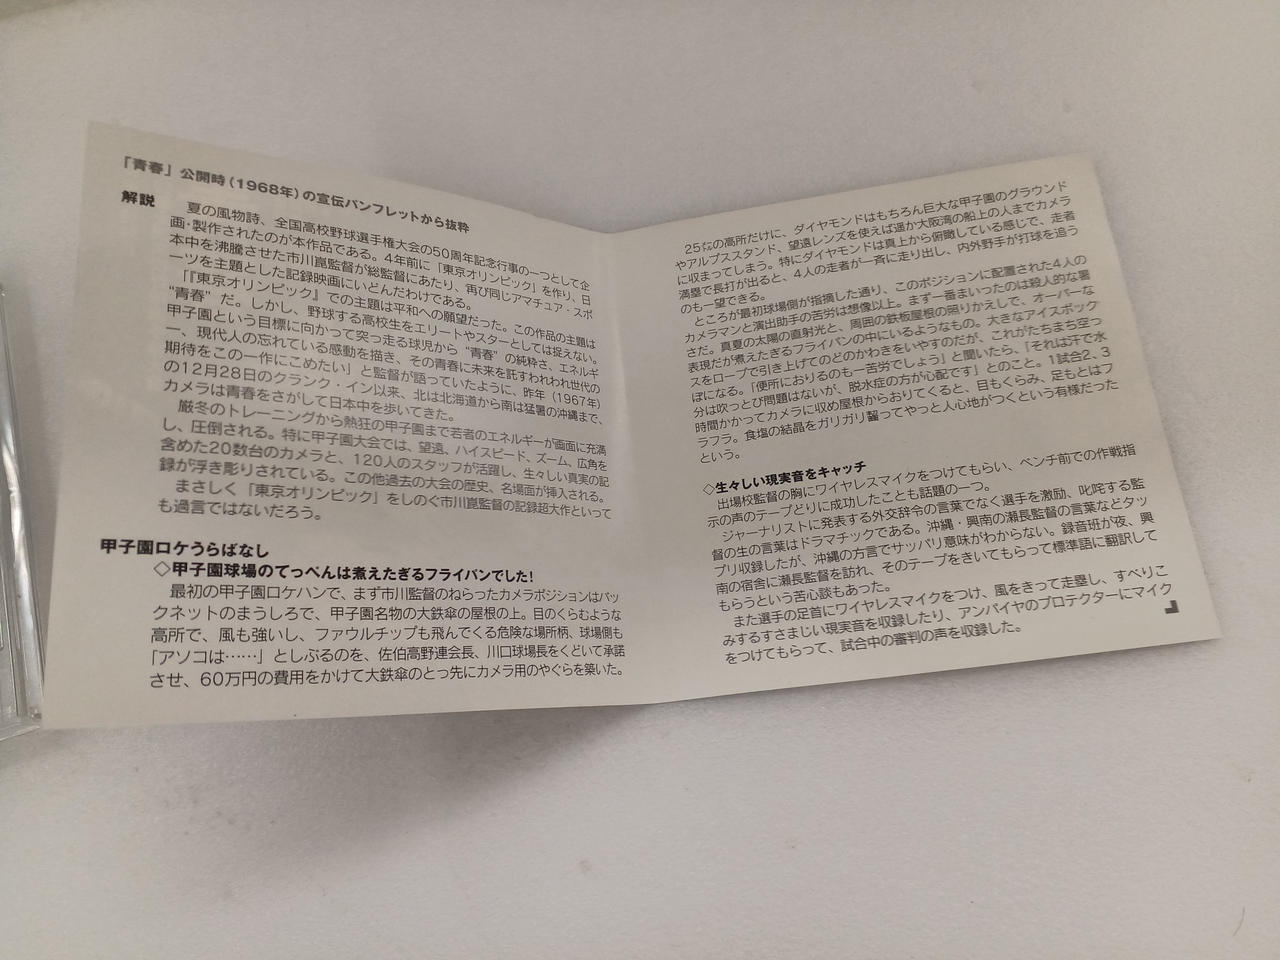 「青春」公開時(1968年)の宣伝パンフレットから抜粋
解説
夏の風物詩、全国高校野球選手権大会の50周年記念行事の一つとして企
画・製作されたのが本作品である。4年前に「東京オリンピック」を作り、日
本中を沸騰させた市川崑監督が総監督にあたり、再び同じアマチュア・スポ
ーツを主題とした記録映画にいどんだわけである。
「『東京オリンピック』での主題は平和への願望だった。この作品の主題は
“青春”だ。しかし、野球する高校生をエリートやスターとしては捉えない。
甲子園という目標に向かって突っ走る球児から“青春”の純粋さ、エネルギ
ー、現代人の忘れている感動を描き、その青春に未来を託すわれわれ世代の
期待をこの一作にこめたい」と監督が語っていたように、昨年(1967年)
の12月28日のクランク・イン以来、北は北海道から南は猛暑の沖縄まで、
カメラは青春をさがして日本中を歩いてきた。
厳冬のトレーニングから熱狂の甲子園まで若者のエネルギーが画面に充満
し、圧倒される。特に甲子園大会では、望遠、ハイスピード、ズーム、広角を
含めた20数台のカメラと、120人のスタッフが活躍し、生々しい真実の記
録が浮き彫りされている。この他過去の大会の歴史、名場面が挿入される。
まさしく「東京オリンピック」をしのぐ市川崑監督の記録超大作といって
も過言ではないだろう。
甲子園ロケうらばなし
◇甲子園球場のてっぺんは煮えたぎるフライパンでした!
最初の甲子園ロケハンで、まず市川監督のねらったカメラポジションはバッ
クネットのまうしろで、甲子園名物の大鉄傘の屋根の上。目のくらむような
高所で、風も強いし、ファウルチップも飛んでくる危険な場所柄、球場側も
「アソコは……」としぶるのを、佐伯高野連会長、川口球場長をくどいて承諾
させ、60万円の費用をかけて大鉄傘のとっ先にカメラ用のやぐらを築いた。
25㍍の高所だけに、ダイヤモンドはもちろん巨大な甲子園のグラウンド
やアルプススタンド、望遠レンズを使えば遥か大阪湾の船上の人までカメラ
に収まってしまう。特にダイヤモンドは真上から俯瞰している感じで、走者
満塁で長打が出ると、4人の走者が一斉に走り出し、内外野手が打球を追う
のも一望できる。
ところが最初球場側が指摘した通り、このポジションに配置された4人の
カメラマンと演出助手の苦労は想像以上。まず一番まいったのは殺人的な暑
さだ。真夏の太陽の直射光と、周囲の鉄板屋根の照りかえしで、オーバーな
表現だが煮えたぎるフライパンの中にいるようなもの。大きなアイスボック
スをロープで引き上げてのどのかわきをいやすのだが、これがたちまち空っ
ぽになる。「便所におりるのも一苦労でしょう」と聞いたら、「それは汗で水
分は吹っとび問題はないが、脱水症の方が心配です」とのこと。1試合2、3
時間かかってカメラに収め屋根からおりてくると、目もくらみ、足もとはフ
ラフラ。食塩の結晶をガリガリ齧ってやっと人心地がつくという有様だった
という。
◇生々しい現実音をキャッチ
出場校監督の胸にワイヤレスマイクをつけてもらい、ベンチ前での作戦指
示の声のテープどりに成功したことも話題の一つ。
ジャーナリストに発表する外交辞令の言葉でなく選手を激励、叱咤する監
督の生の言葉はドラマチックである。沖縄・興南の瀬長監督の言葉などタッ
プリ収録したが、沖縄の方言でサッパリ意味がわからない。録音班が夜、興
南の宿舎に瀬長監督を訪れ、そのテープをきいてもらって標準語に翻訳して
もらうという苦心談もあった。
また選手の足首にワイヤレスマイクをつけ、風をきって走塁し、すべりこ
みするすさまじい現実音を収録したり、アンパイヤのプロテクターにマイク
をつけてもらって、試合中の審判の声を収録した。